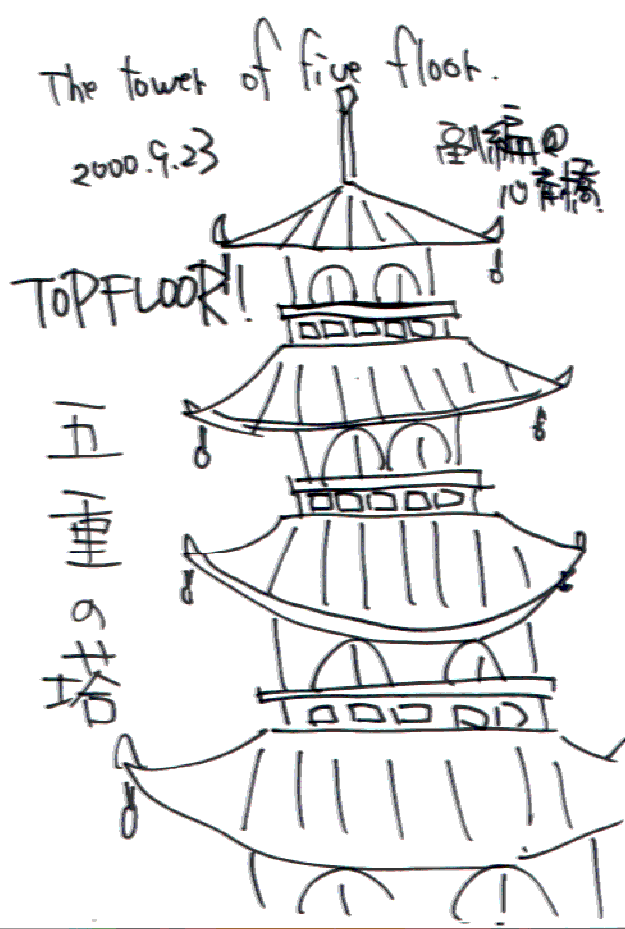 The tower of five floor.
2000.9.23
副編@
高橋
TOPFLOOR!!
五重の塔